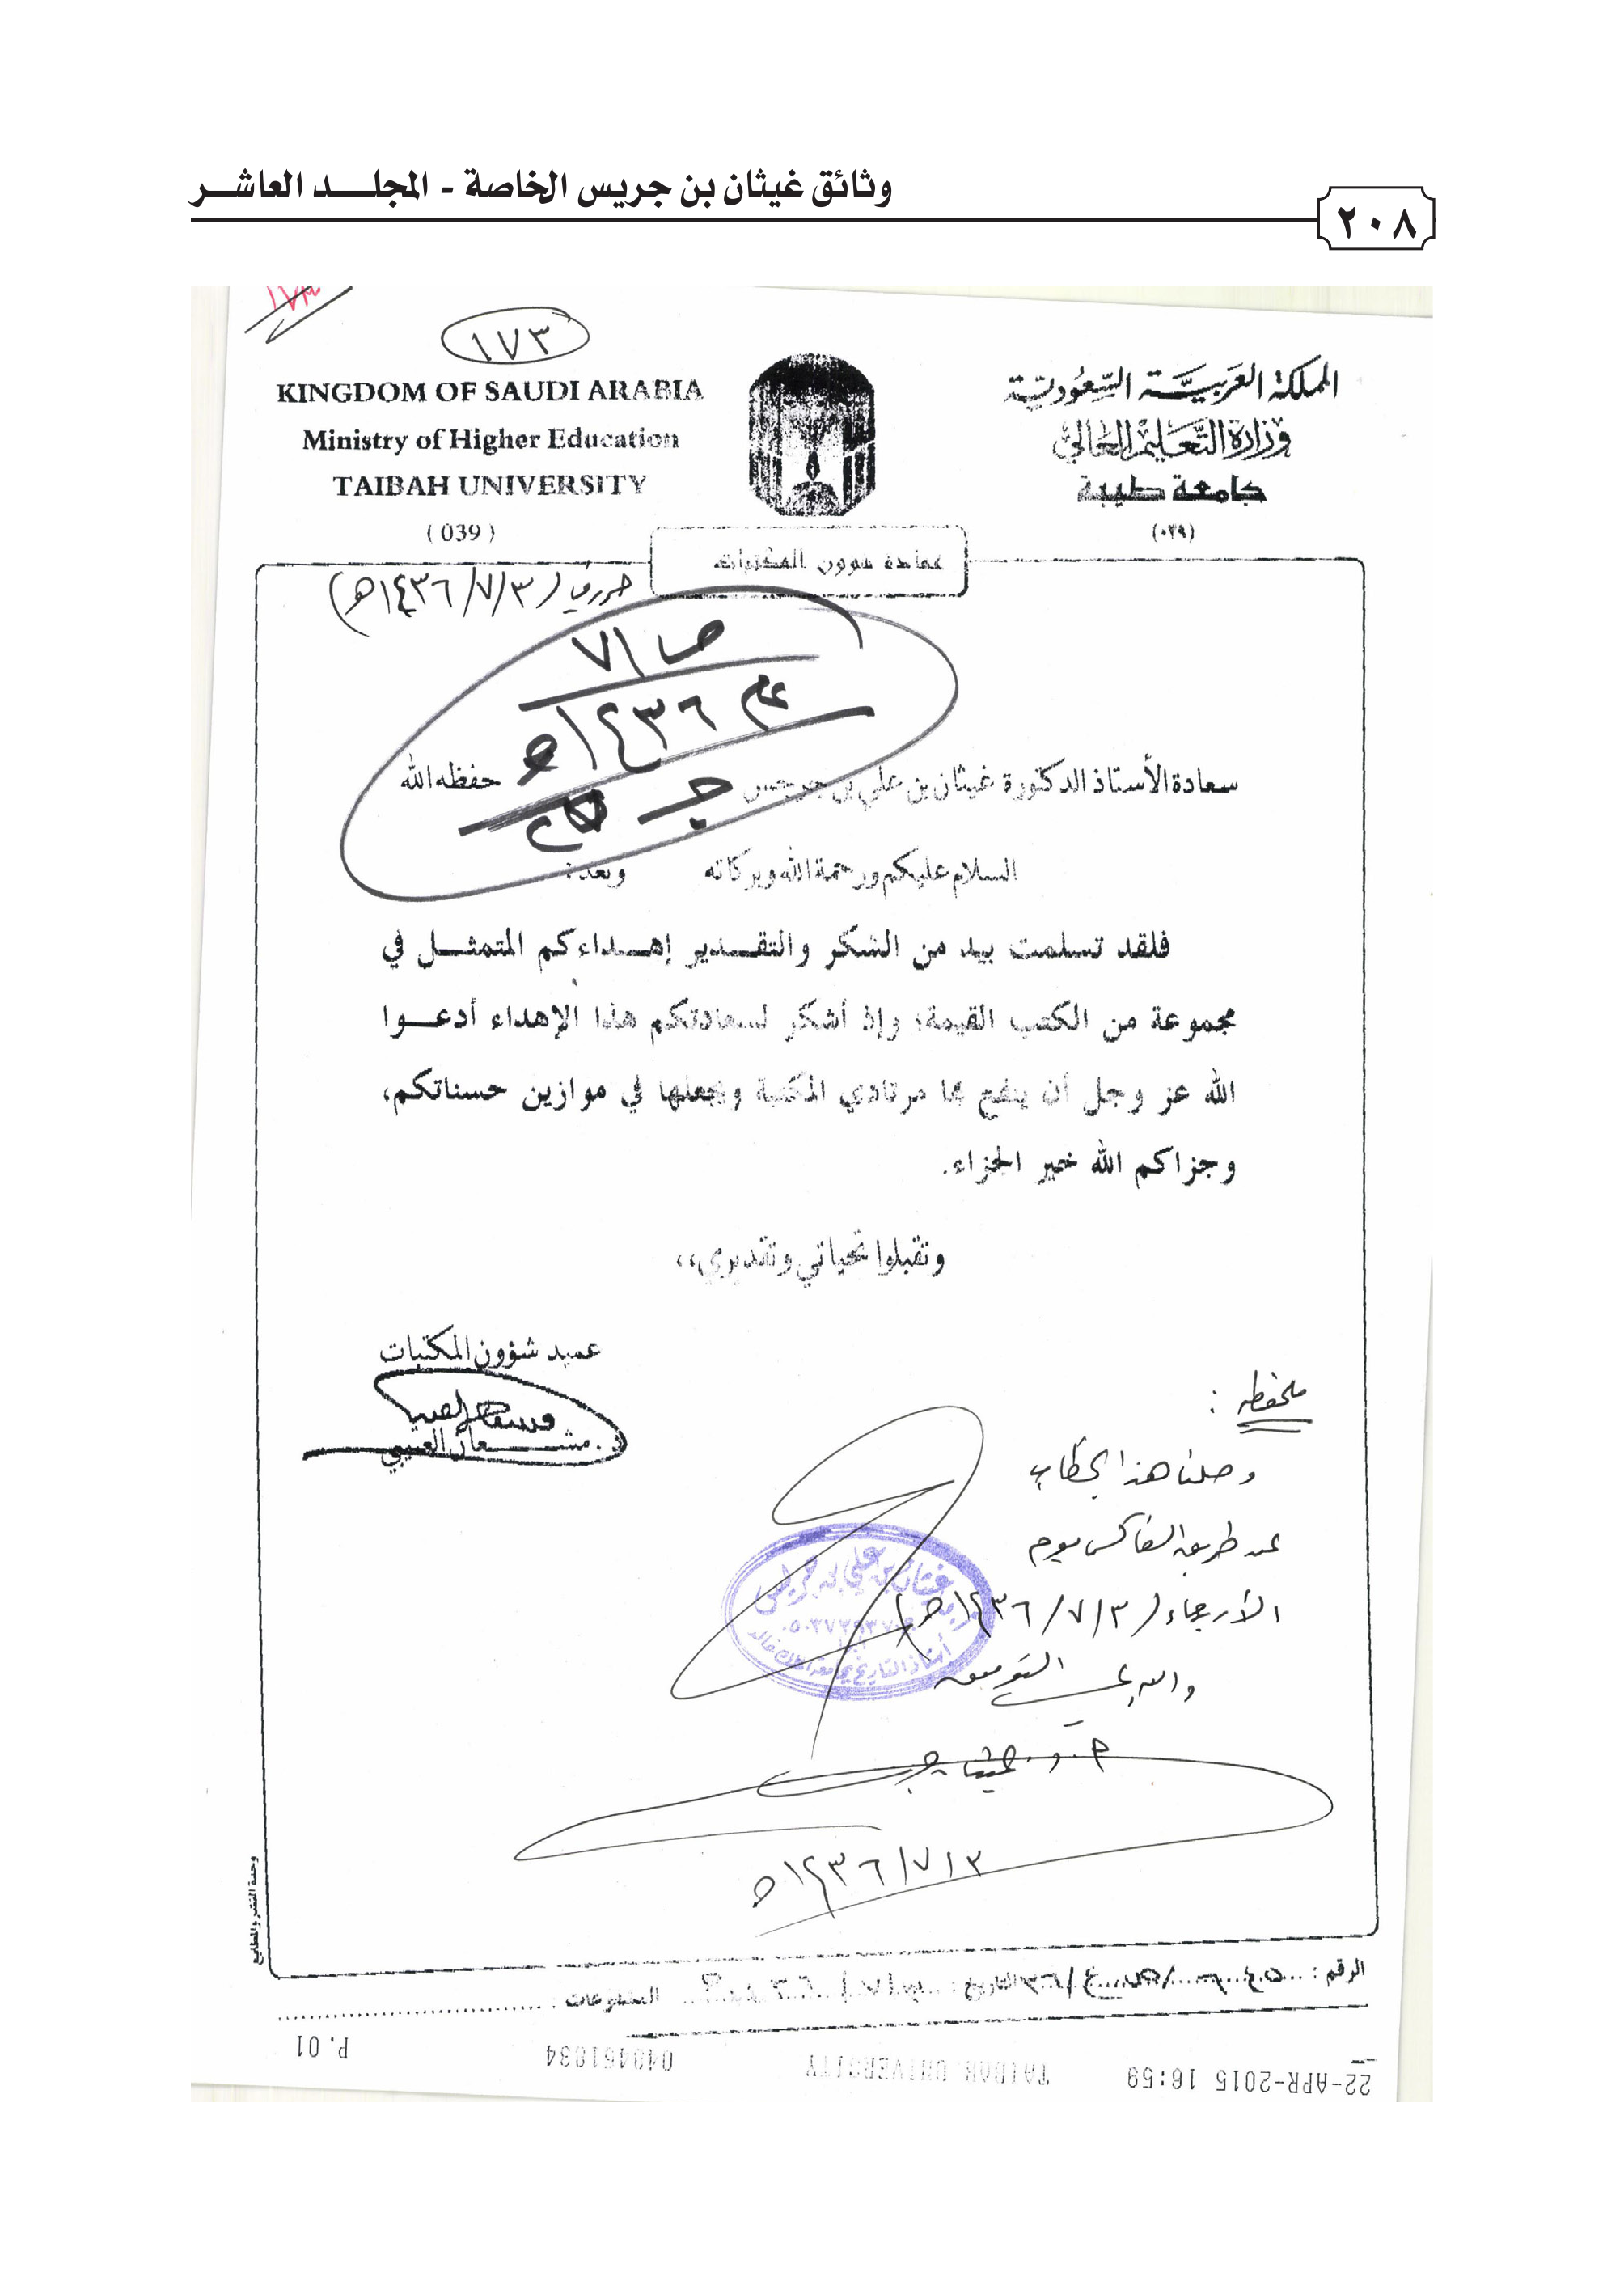 وثائق غيثان بن جريس الخاصة - المجلـــد العاشـــر
٢٠٨
١٧٣
١٧٣
KINGDOM OF SAUDI ARABIA
Ministry of Higher Education
TAIBAH UNIVERSITY
( 039 )
المملكة العربية السعودية
وزارة التعليم العالي
جامعة طيبة
(٠٣٩)
عمادة شؤون المكتبات
(١٤٣٦/٧/٣هـ)
ص ٧١
عام ١٤٣٦هـ
سعادة الأستاذ الدكتورة غيثان بن علي بن جرجس حفظه الله
السلام عليكم ورحمة الله وبركاته وبعد:
فلقد تسلمت بيد من الشكر والتقـــدير إهـــداءكم المتمثـــل في
مجموعة من الكتب القيمة؛ وإذ أشكر لسعادتكم هذا الإهداء أدعـــوا
الله عز وجل أن ينفع بها مرتادي المكتبة ويجعلها في موازين حسناتكم،
وجزاكم الله خير الجزاء.
وتقبلوا تحياتي وتقديري،،
عميد شؤون المكتبات
ملحظه :
وصلنا هذا الخطاب
عن طريق الفاكس يوم
الأربعاء (١٤٣٦/٧/٣هـ)
والله ولي التوفيق
غيثان بن علي بن جريس
أستاذ التاريخ بجامعة الملك خالد
١٤٣٦/٧/٣هـ
وحدة النشر والمطابع
الرقم : التاريخ : المشفوعات :
22-APR-2015 16:59 TAIBAH UNIVERSITY P.01